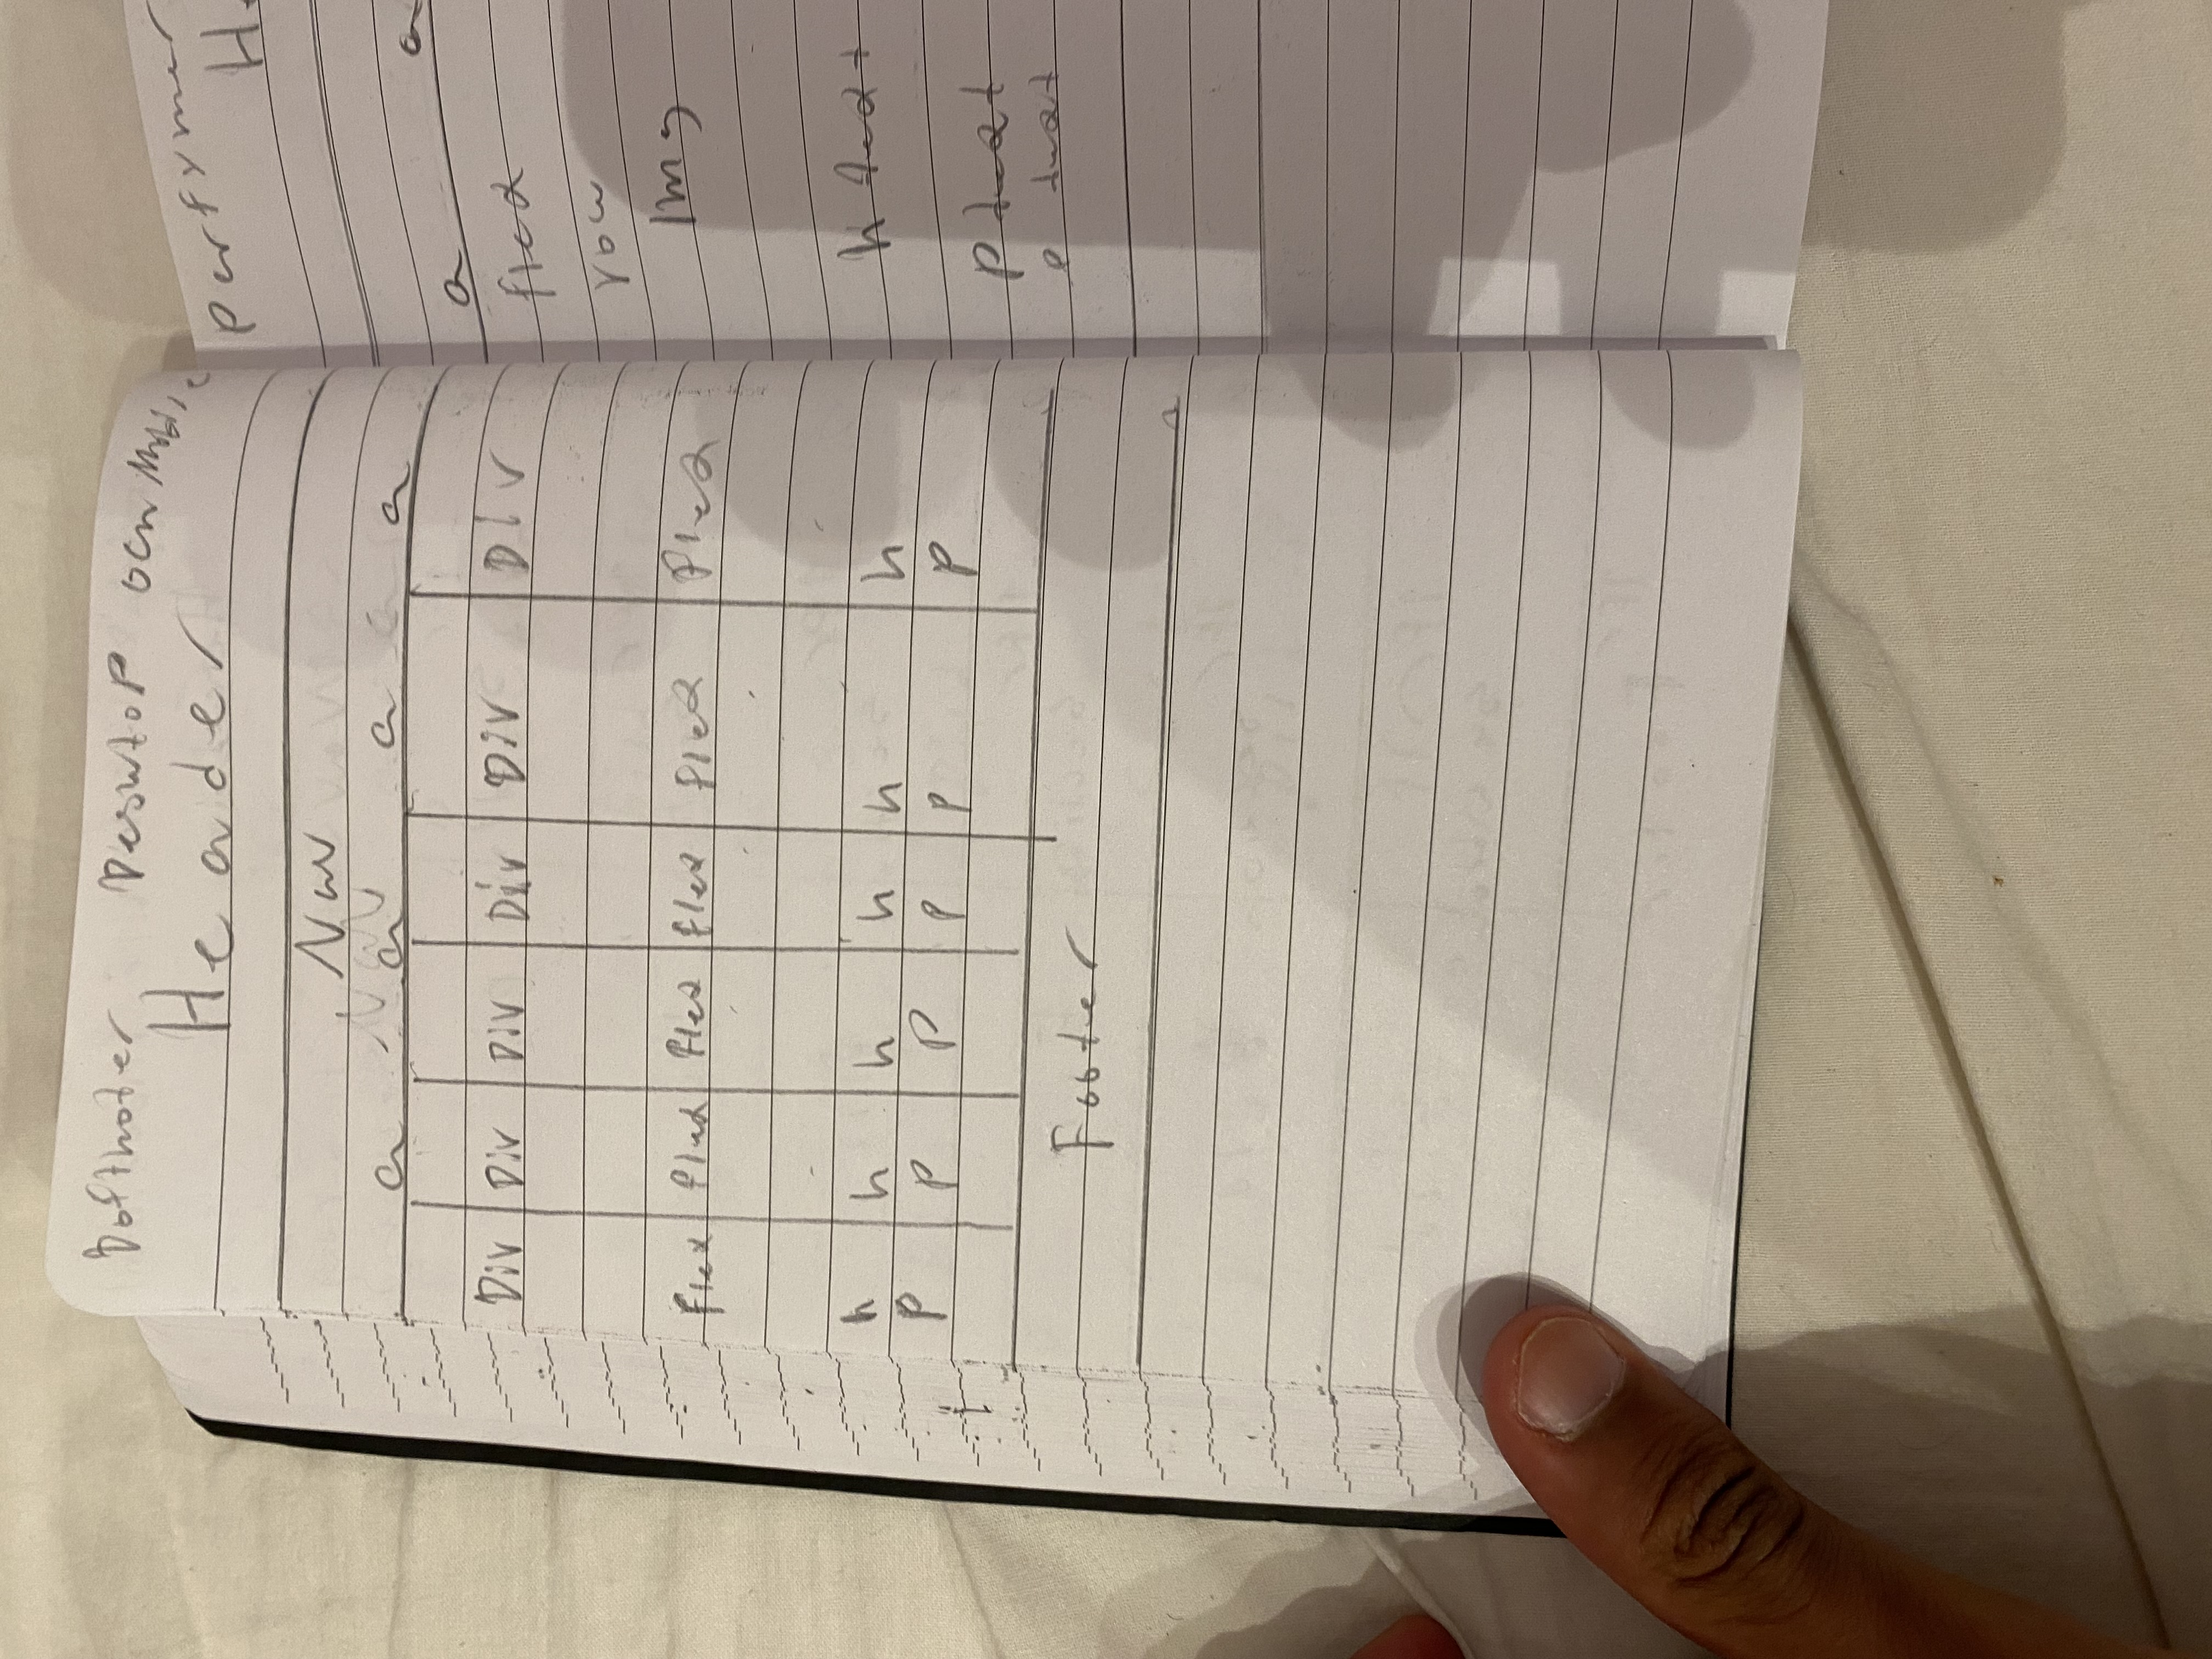 Doftnoter Desktop och Mobile
Header
Nav
a a a a
Div Div Div Div Div Div
flex flex flex flex flex flex
h h h h h h
p p p p p p
Footer
Parfymer
a a
flex
row
Img
h text
p text
p text